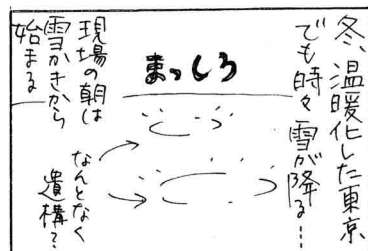 冬、温暖化した東京
でも時々雪が降る…
まっしろ
現場の朝は
雪かきから
始まる
なんとなく
遺構?